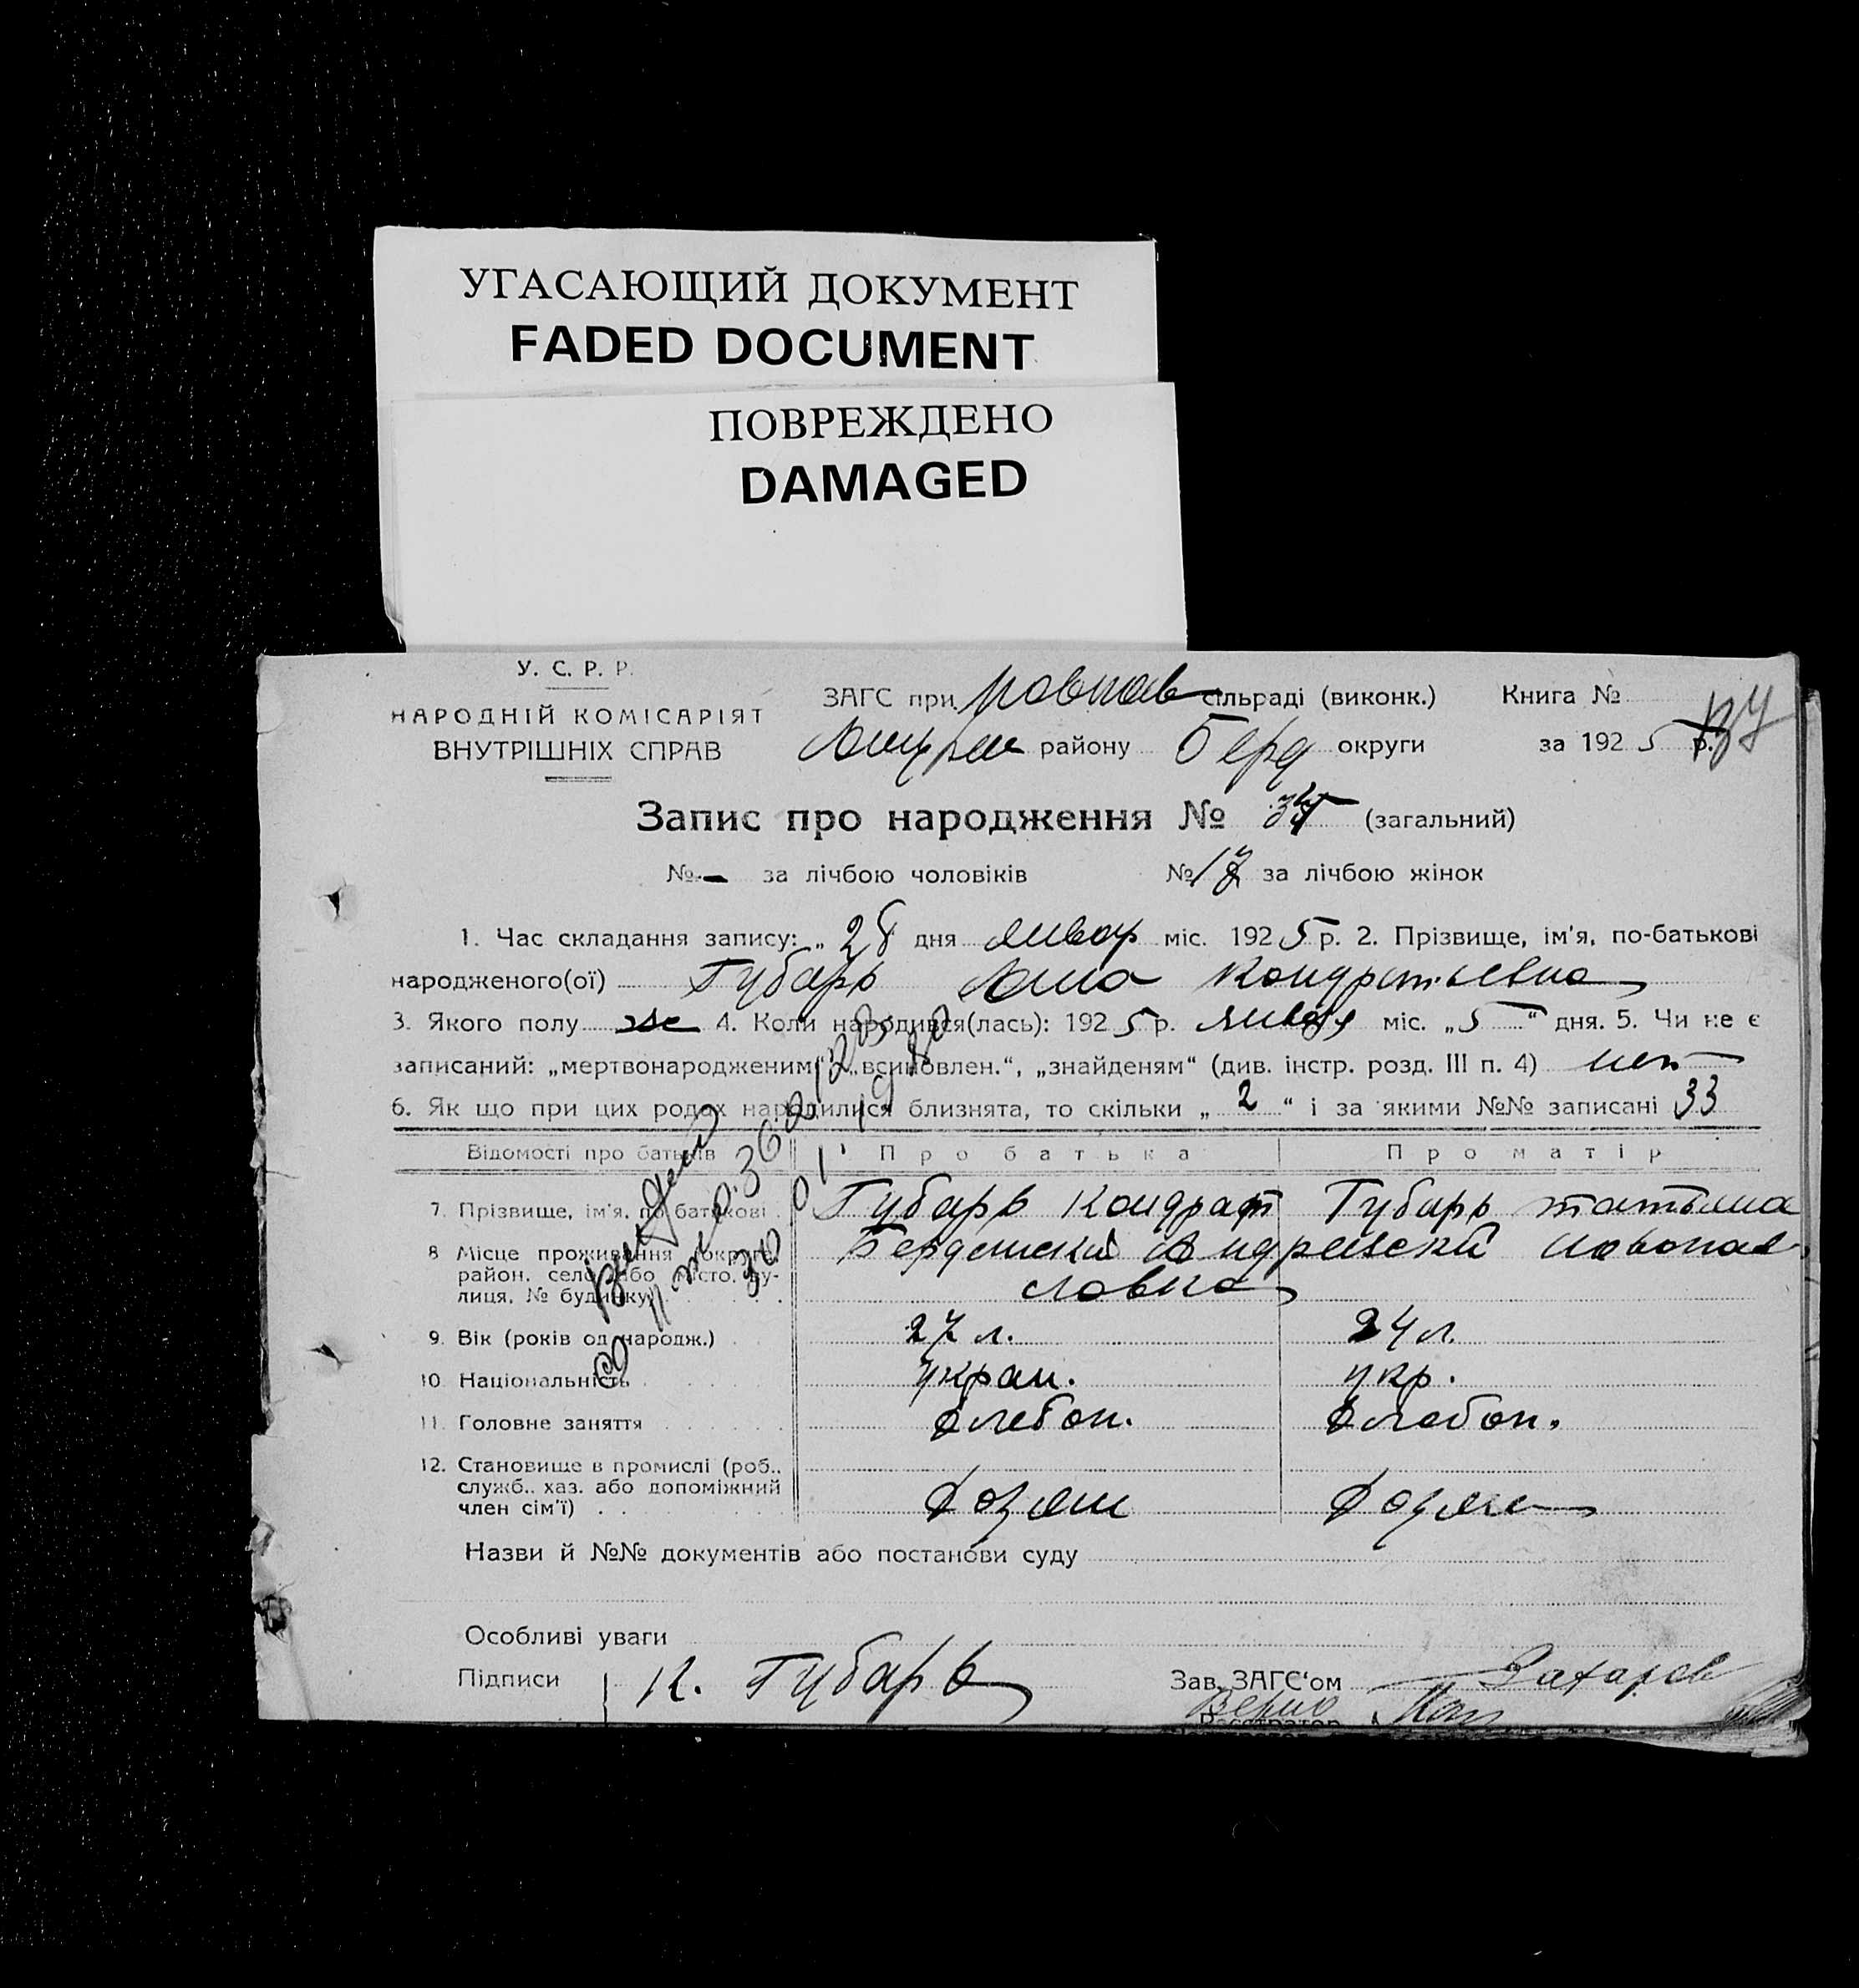 УГАСАЮЩИЙ ДОКУМЕНТ
FADED DOCUMENT
ПОВРЕЖДЕНО
DAMAGED
У. С. Р. Р.
НАРОДНІЙ КОМІСАРІЯТ
ВНУТРІШНІХ СПРАВ
ЗАГС при Новпав сільраді (виконк.) Книга №
району Берд округи за 1925 р.
Запис про народження № 34 (загальний)
№ - за лічбою чоловіків № 17 за лічбою жінок
1. Час складання запису: „28 дня январ міс. 1925 р. 2. Прізвище, ім'я, по-батькові
народженого(ої) Губарь Анна Кондратьевна
3. Якого полу же 4. Коли народився(лась): 1925 р. января міс. „5“ дня. 5. Чи не є
записаний: „мертвонародженим“, „всиновлен.“, „знайденям“ (див. інстр. розд. III п. 4) нет
6. Як що при цих родах народилися близнята, то скільки „2“ і за якими №№ записані 33
Відомості про батьків Про батька Про матір
7. Прізвище, ім'я, по батькові Губарь Кондрат Губарь татьяна
8 Місце проживання (округа, Бердянский Андреевский новопав
район, село або місто, ву- ловка
лиця, № будинку)
9. Вік (років од народж.) 27 л. 24 л.
10. Національність укран. укр.
11. Головне заняття хлебоп. хлебоп.
12. Становище в промислі (роб.,
служб., хаз. або допоміжний
член сім'ї) хозяин хозяин
Назви й №№ документів або постанови суду
Особливі уваги
Підписи К. Губарь Зав. ЗАГС'ом Захаров
Верно